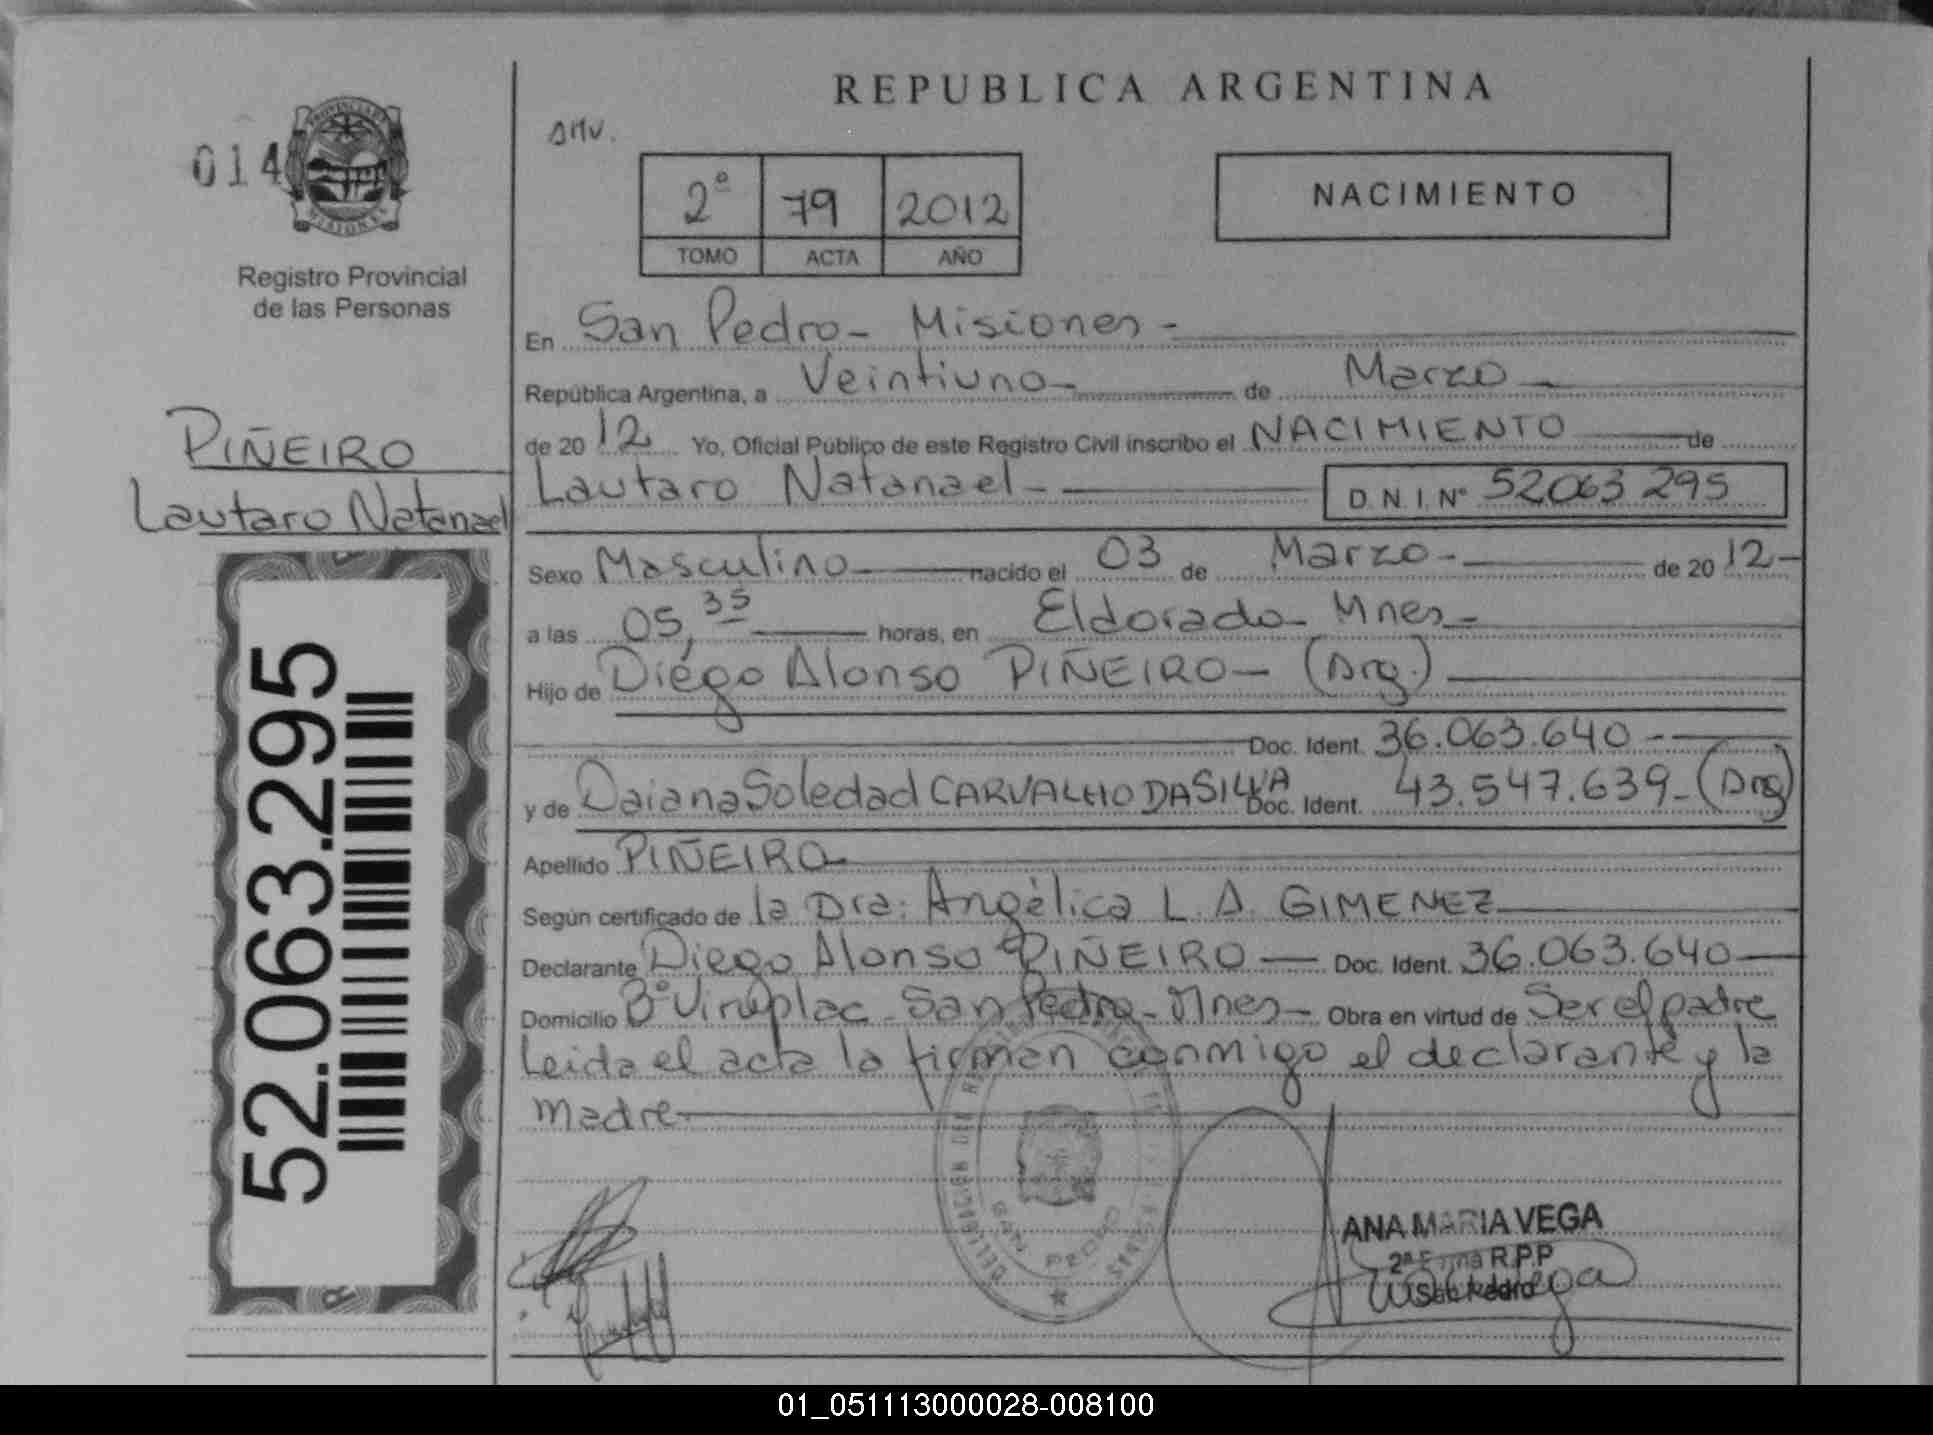 REPUBLICA ARGENTINA
014
2º 79 2012
TOMO ACTA AÑO
NACIMIENTO
Registro Provincial
de las Personas
PIÑEIRO
Lautaro Natanael
52.063.295
En San Pedro - Misiones -
República Argentina, a Veintiuno - de Marzo -
de 20 12 Yo, Oficial Público de este Registro Civil inscribo el NACIMIENTO de
Lautaro Natanael - D.N.I. Nº 52063295
Sexo Masculino nacido el 03 de Marzo - de 20 12 -
a las 05,35 horas, en Eldorado - Mnes -
Hijo de Diego Alonso PIÑEIRO - (Arg.)
Doc. Ident. 36.063.640 -
y de Daiana Soledad CARVALHO DA SILVA Doc. Ident. 43.547.639 - (Arg)
Apellido PIÑEIRO
Según certificado de la Dra: Angélica L. A. GIMENEZ
Declarante Diego Alonso PIÑEIRO - Doc. Ident. 36.063.640 -
Domicilio Bº Viruplac - San Pedro - Mnes - Obra en virtud de Ser el padre
Leida el acta la firman conmigo el declarante y la
madre
SAN PEDRO
ANA MARIA VEGA
2ª Firma R.P.P
San Pedro
01_051113000028-008100